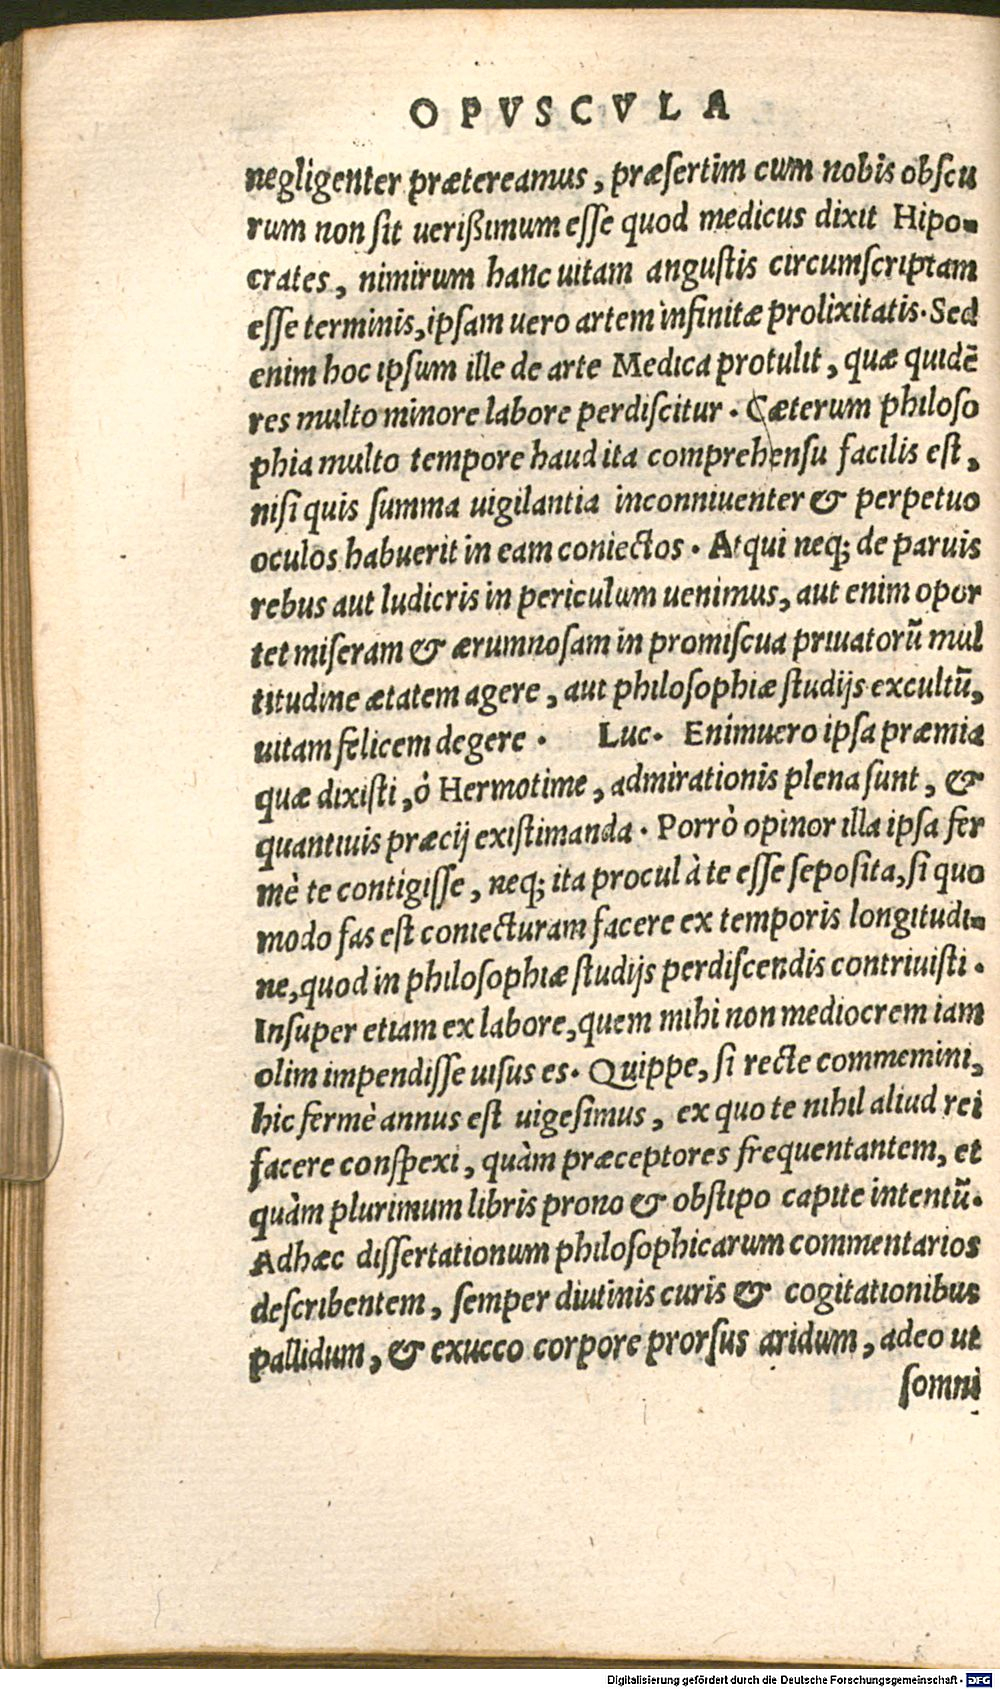 OPVSCVLA
negligenter prætereamus, præsertim cum nobis obscu
rum non sit uerißimum esse quod medicus dixit Hipo-
crates, nimirum hanc uitam angustis circumscriptam
esse terminis, ipsam uero artem infinitæ prolixitatis. Sed
enim hoc ipsum ille de arte Medica protulit, quæ quidẽ
res multo minore labore perdiscitur. Cæterum philoso
phia multo tempore haud ita comprehensu facilis est,
nisi quis summa uigilantia inconniuenter & perpetuo
oculos habuerit in eam coniectos. Atqui neq; de paruis
rebus aut ludicris in periculum uenimus, aut enim opor
tet miseram & ærumnosam in promiscua priuatorũ mul
titudine ætatem agere, aut philosophiæ studijs excultũ,
uitam felicem degere. Luc. Enimuero ipsa præmia
quæ dixisti, ò Hermotime, admirationis plena sunt, &
quantiuis præcij existimanda. Porrò opinor illa ipsa fer
mè te contigisse, neq; ita procul à te esse seposita, si quo
modo fas est coniecturam facere ex temporis longitudi-
ne, quod in philosophiæ studijs perdiscendis contriuisti.
Insuper etiam ex labore, quem mihi non mediocrem iam
olim impendisse uisus es. Quippe, si recte commemini,
hic fermè annus est uigesimus, ex quo te nihil aliud rei
facere conspexi, quàm præceptores frequentantem, et
quàm plurimum libris prono & obstipo capite intentũ.
Adhæc dissertationum philosophicarum commentarios
describentem, semper diutinis curis & cogitationibus
pallidum, & exucco corpore prorsus aridum, adeo ut
somni
Digitalisierung gefördert durch die Deutsche Forschungsgemeinschaft - DFG